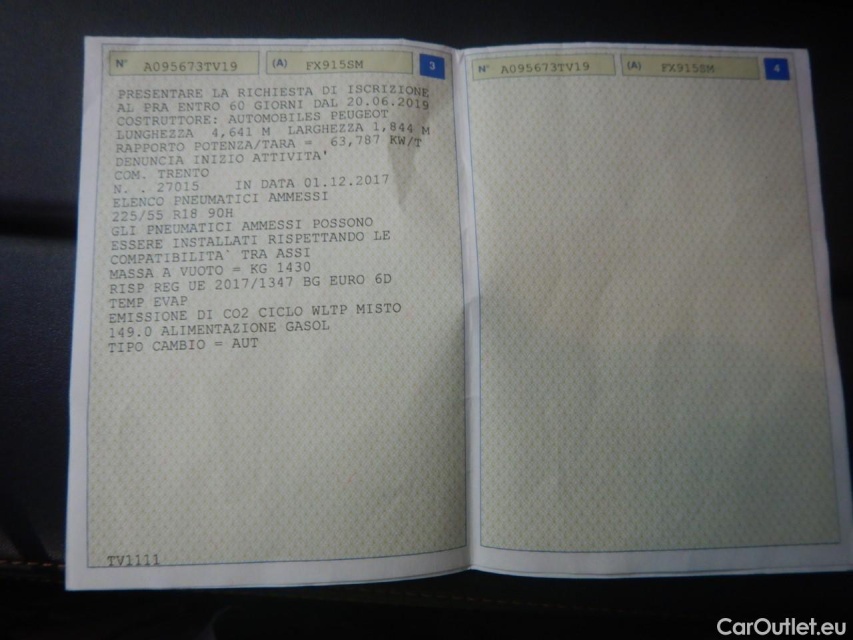 N° A095673TV19 (A) FX915SM 3
PRESENTARE LA RICHIESTA DI ISCRIZIONE
AL PRA ENTRO 60 GIORNI DAL 20.06.2019
COSTRUTTORE: AUTOMOBILES PEUGEOT
LUNGHEZZA 4,641 M LARGHEZZA 1,844 M
RAPPORTO POTENZA/TARA = 63,787 KW/T
DENUNCIA INIZIO ATTIVITA'
COM. TRENTO
N. . 27015 IN DATA 01.12.2017
ELENCO PNEUMATICI AMMESSI
225/55 R18 90H
GLI PNEUMATICI AMMESSI POSSONO
ESSERE INSTALLATI RISPETTANDO LE
COMPATIBILITA` TRA ASSI
MASSA A VUOTO = KG 1430
RISP REG UE 2017/1347 BG EURO 6D
TEMP EVAP
EMISSIONE DI CO2 CICLO WLTP MISTO
149.0 ALIMENTAZIONE GASOL
TIPO CAMBIO = AUT
TV1111
N° A095673TV19 (A) FX915SM 4
CarOutlet.eu